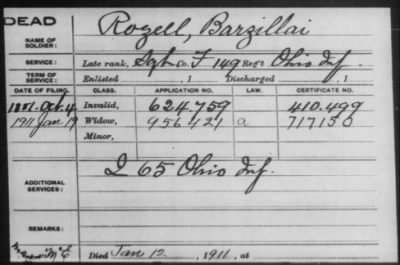 DEAD
NAME OF SOLDIER: Rozell, Barzillai
SERVICE: Late rank, Sgt Co. F, 149 Reg't Ohio Inf.
TERM OF SERVICE: Enlisted , 1 Discharged , 1
DATE OF FILING. CLASS. APPLICATION NO. LAW. CERTIFICATE NO.
Oct. 4 Invalid, 624.759 410.499
1911 Jan. 19 Widow, 956421 a 717150
Minor,
ADDITIONAL SERVICES: 65 Ohio Inf.
REMARKS:
Died Jan 12, 1911, at